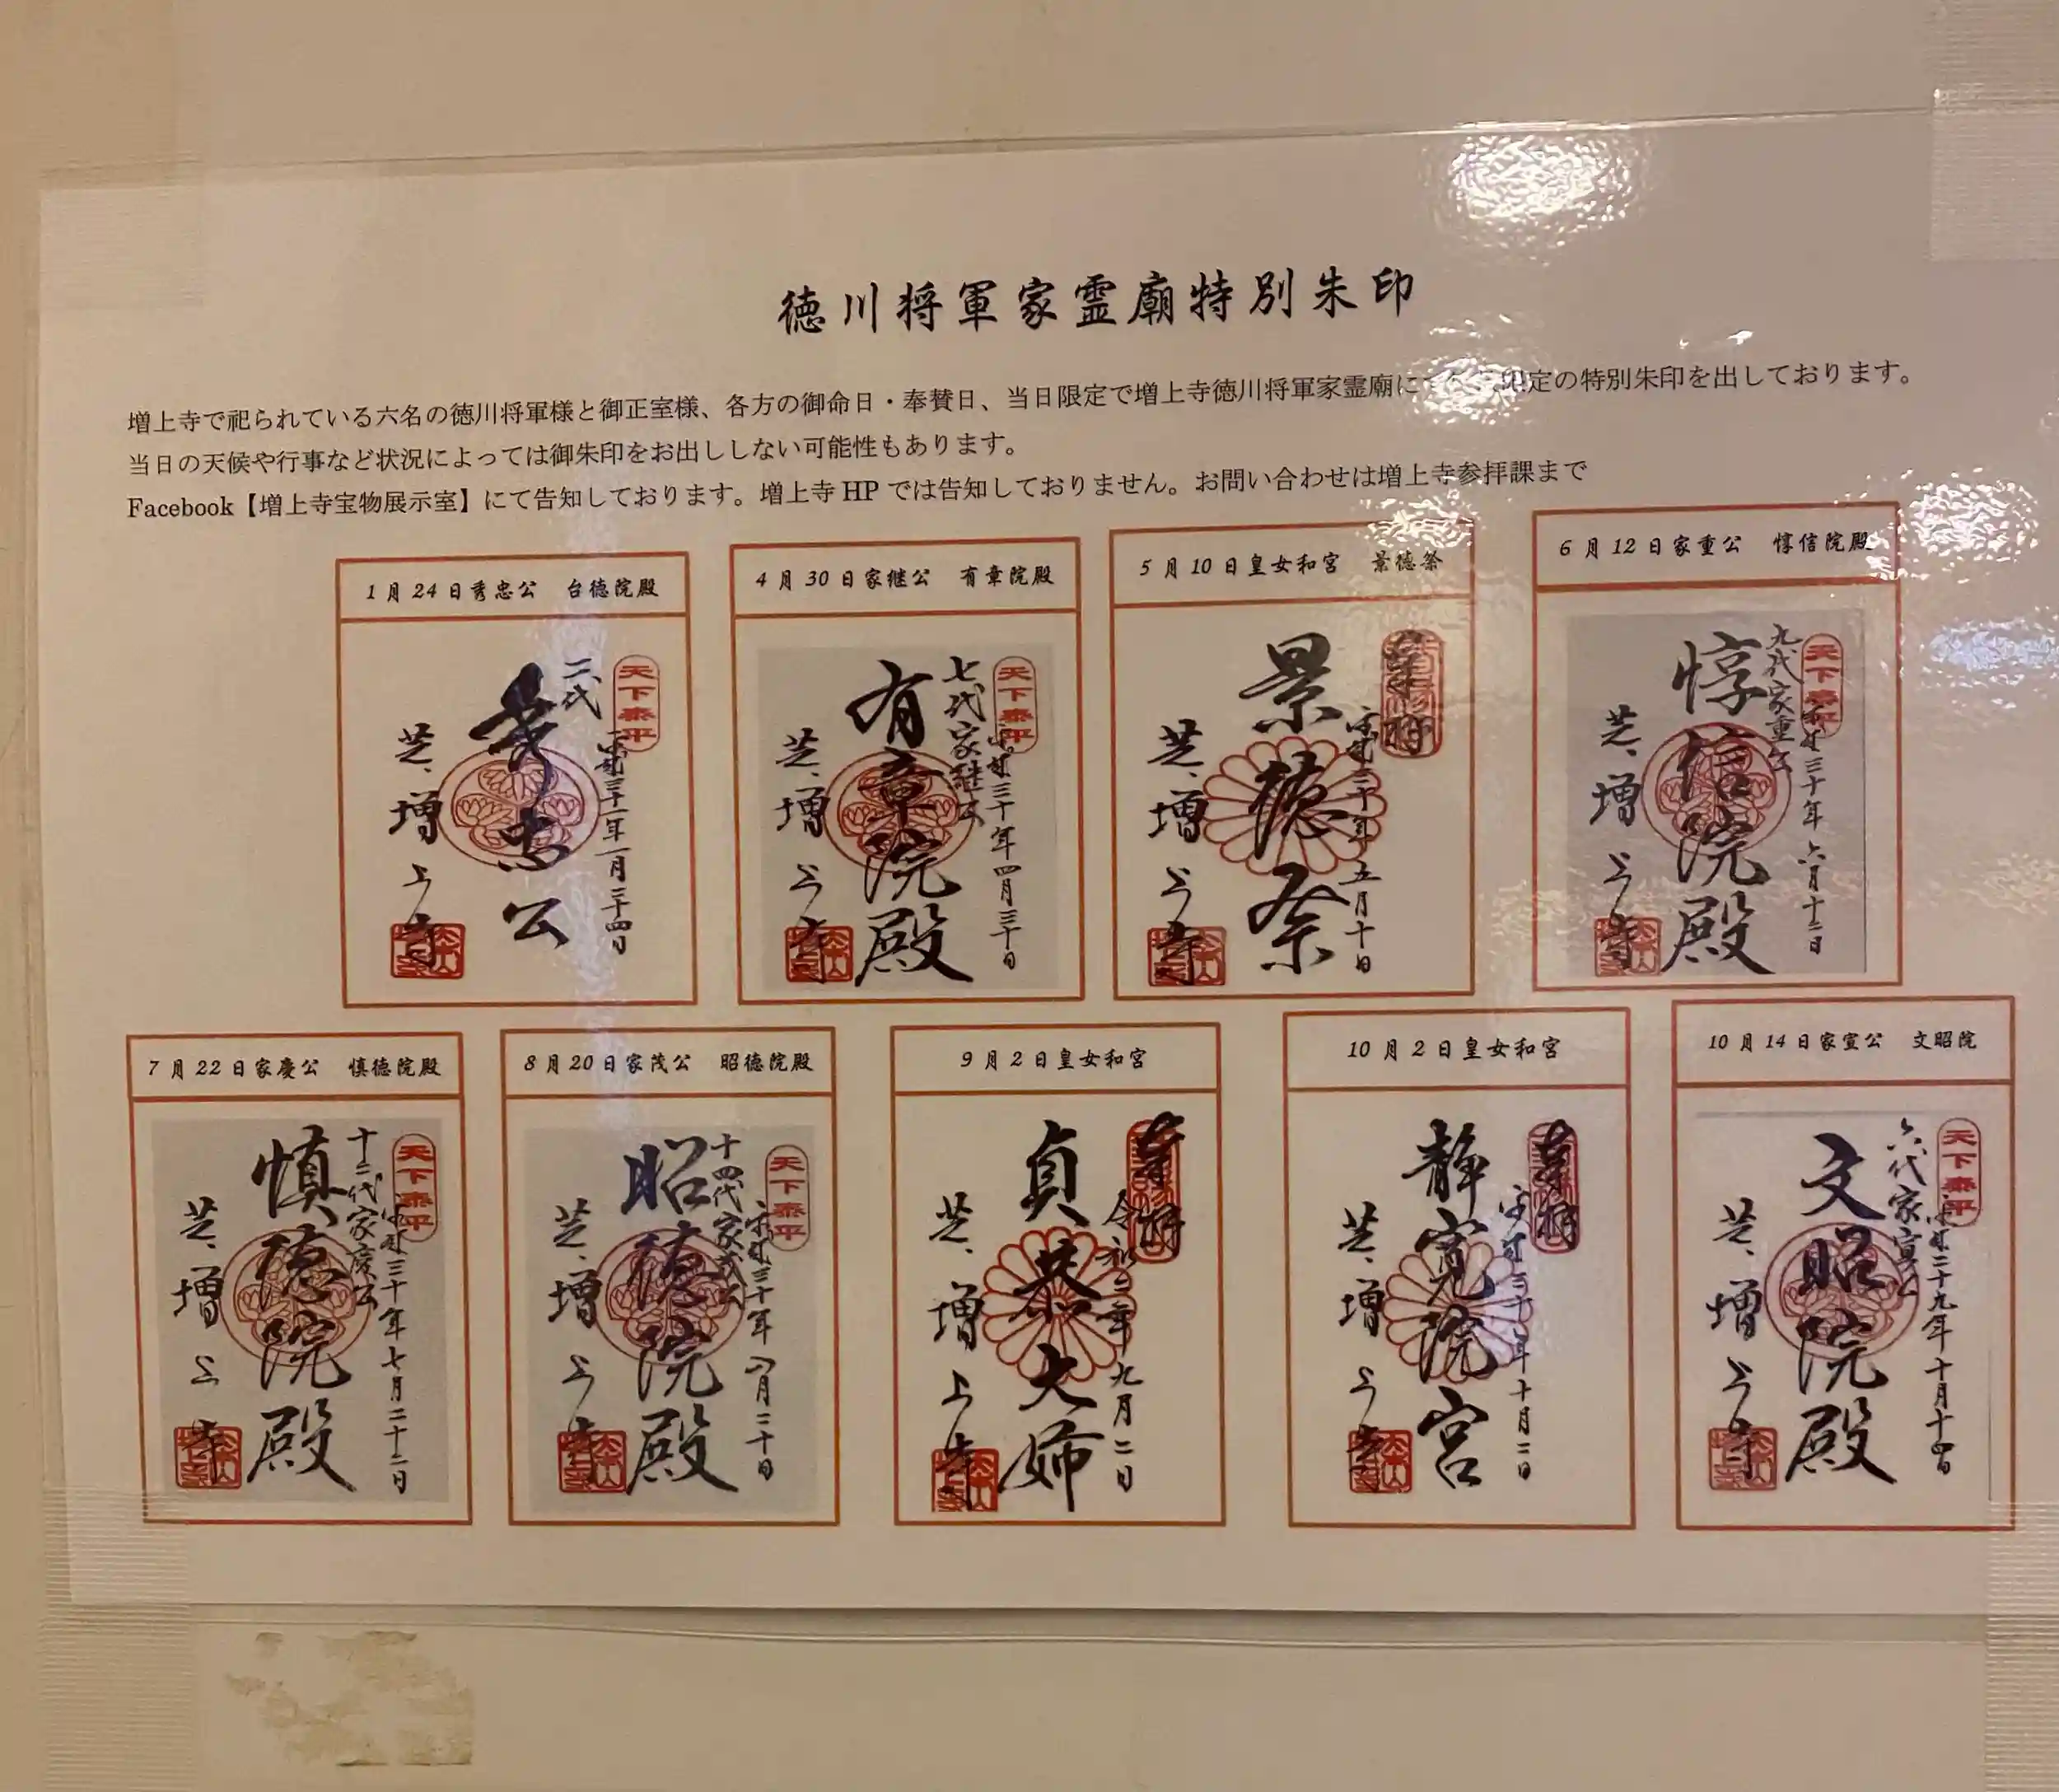 徳川将軍家霊廟特別朱印
増上寺で祀られている六名の徳川将軍様と御正室様、各方の御命日・奉賛日、当日限定で増上寺徳川将軍家霊廟に 限定の特別朱印を出しております。
当日の天候や行事など状況によっては御朱印をお出ししない可能性もあります。
Facebook【増上寺宝物展示室】にて告知しております。増上寺 HP では告知しておりません。お問い合わせは増上寺参拝課まで
1月24日秀忠公 台徳院殿
天下泰平
二代
秀忠公
芝、増上寺
4月30日家継公 有章院殿
天下泰平
平成三十年四月三十日
七代家継公
有章院殿
芝、増上寺
5月10日皇女和宮 景徳祭
平成三十年五月十日
景徳祭
芝、増上寺
6月12日家重公 惇信院殿
天下泰平
平成三十年六月十二日
九代家重公
惇信院殿
芝、増上寺
7月22日家慶公 慎徳院殿
天下泰平
平成三十年七月二十二日
十二代家慶公
慎徳院殿
芝、増上寺
8月20日家茂公 昭徳院殿
天下泰平
平成三十年八月二十日
十四代家茂公
昭徳院殿
芝、増上寺
9月2日皇女和宮
九月二日
貞恭大姉
芝、増上寺
10月2日皇女和宮
平成三十年十月二日
静寛院宮
芝、増上寺
10月14日家宣公 文昭院
天下泰平
平成二十九年十月十四日
六代家宣公
文昭院殿
芝、増上寺